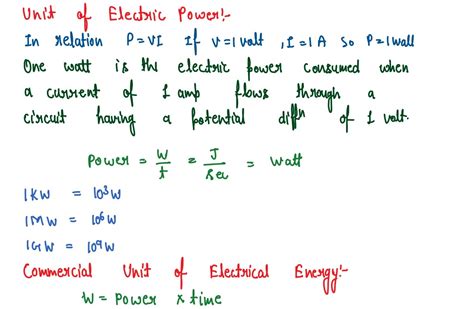 Unit of Electric Power:-
In relation P=VI If V=1 volt, I=1 A so P=1 wall
One watt is the electric power consumed when
a current of 1 amp flows through a
circuit having a potential diffn of 1 volt.
Power = W/t = J/sec = watt
1KW = 10³W
1MW = 10⁶W
1GW = 10⁹W
Commercial Unit of Electrical Energy:-
W = Power × time